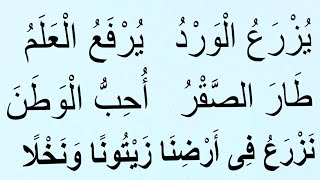 يُزْرَعُ الْوَرْدُ يُرْفَعُ الْعَلَمُ
طَارَ الصَّقْرُ أُحِبُّ الْوَطَنَ
نَزْرَعُ فِى أَرْضِنَا زَيْتُونًا وَنَخْلًا